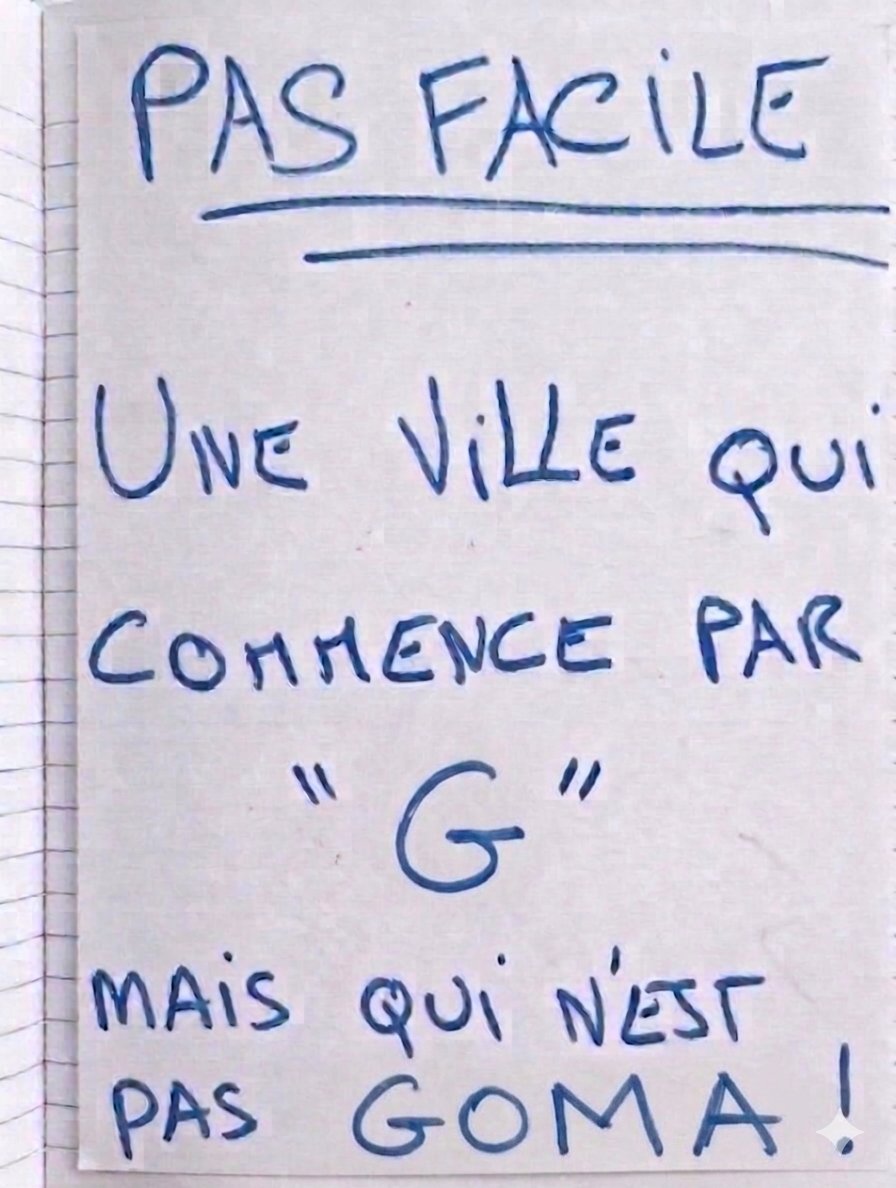 PAS FACILE
UNE ViLLE QUi
COMMENCE PAR
"G"
MAiS QUi N'EST
PAS GOMA !